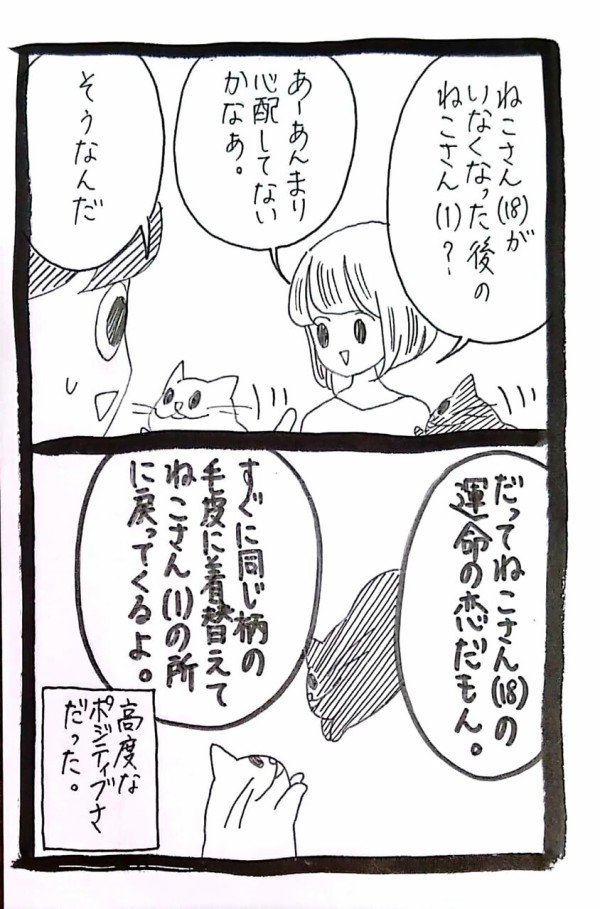 ねこさん(18)が
いなくなった後の
ねこさん(1)?
あーあんまり
心配してない
かなあ。
そうなんだ
だってねこさん(18)の
運命の恋だもん。
すぐに同じ柄の
毛皮に着替えて
ねこさん(1)の所
に戻ってくるよ。
高度な
ポジティブさ
だった。